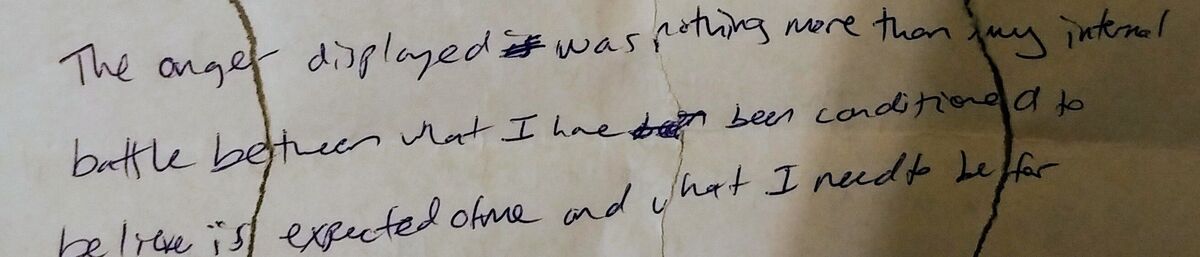 The anger displayed was nothing more than my internal
battle between what I have been conditioned to
believe is expected of me and what I need to be for